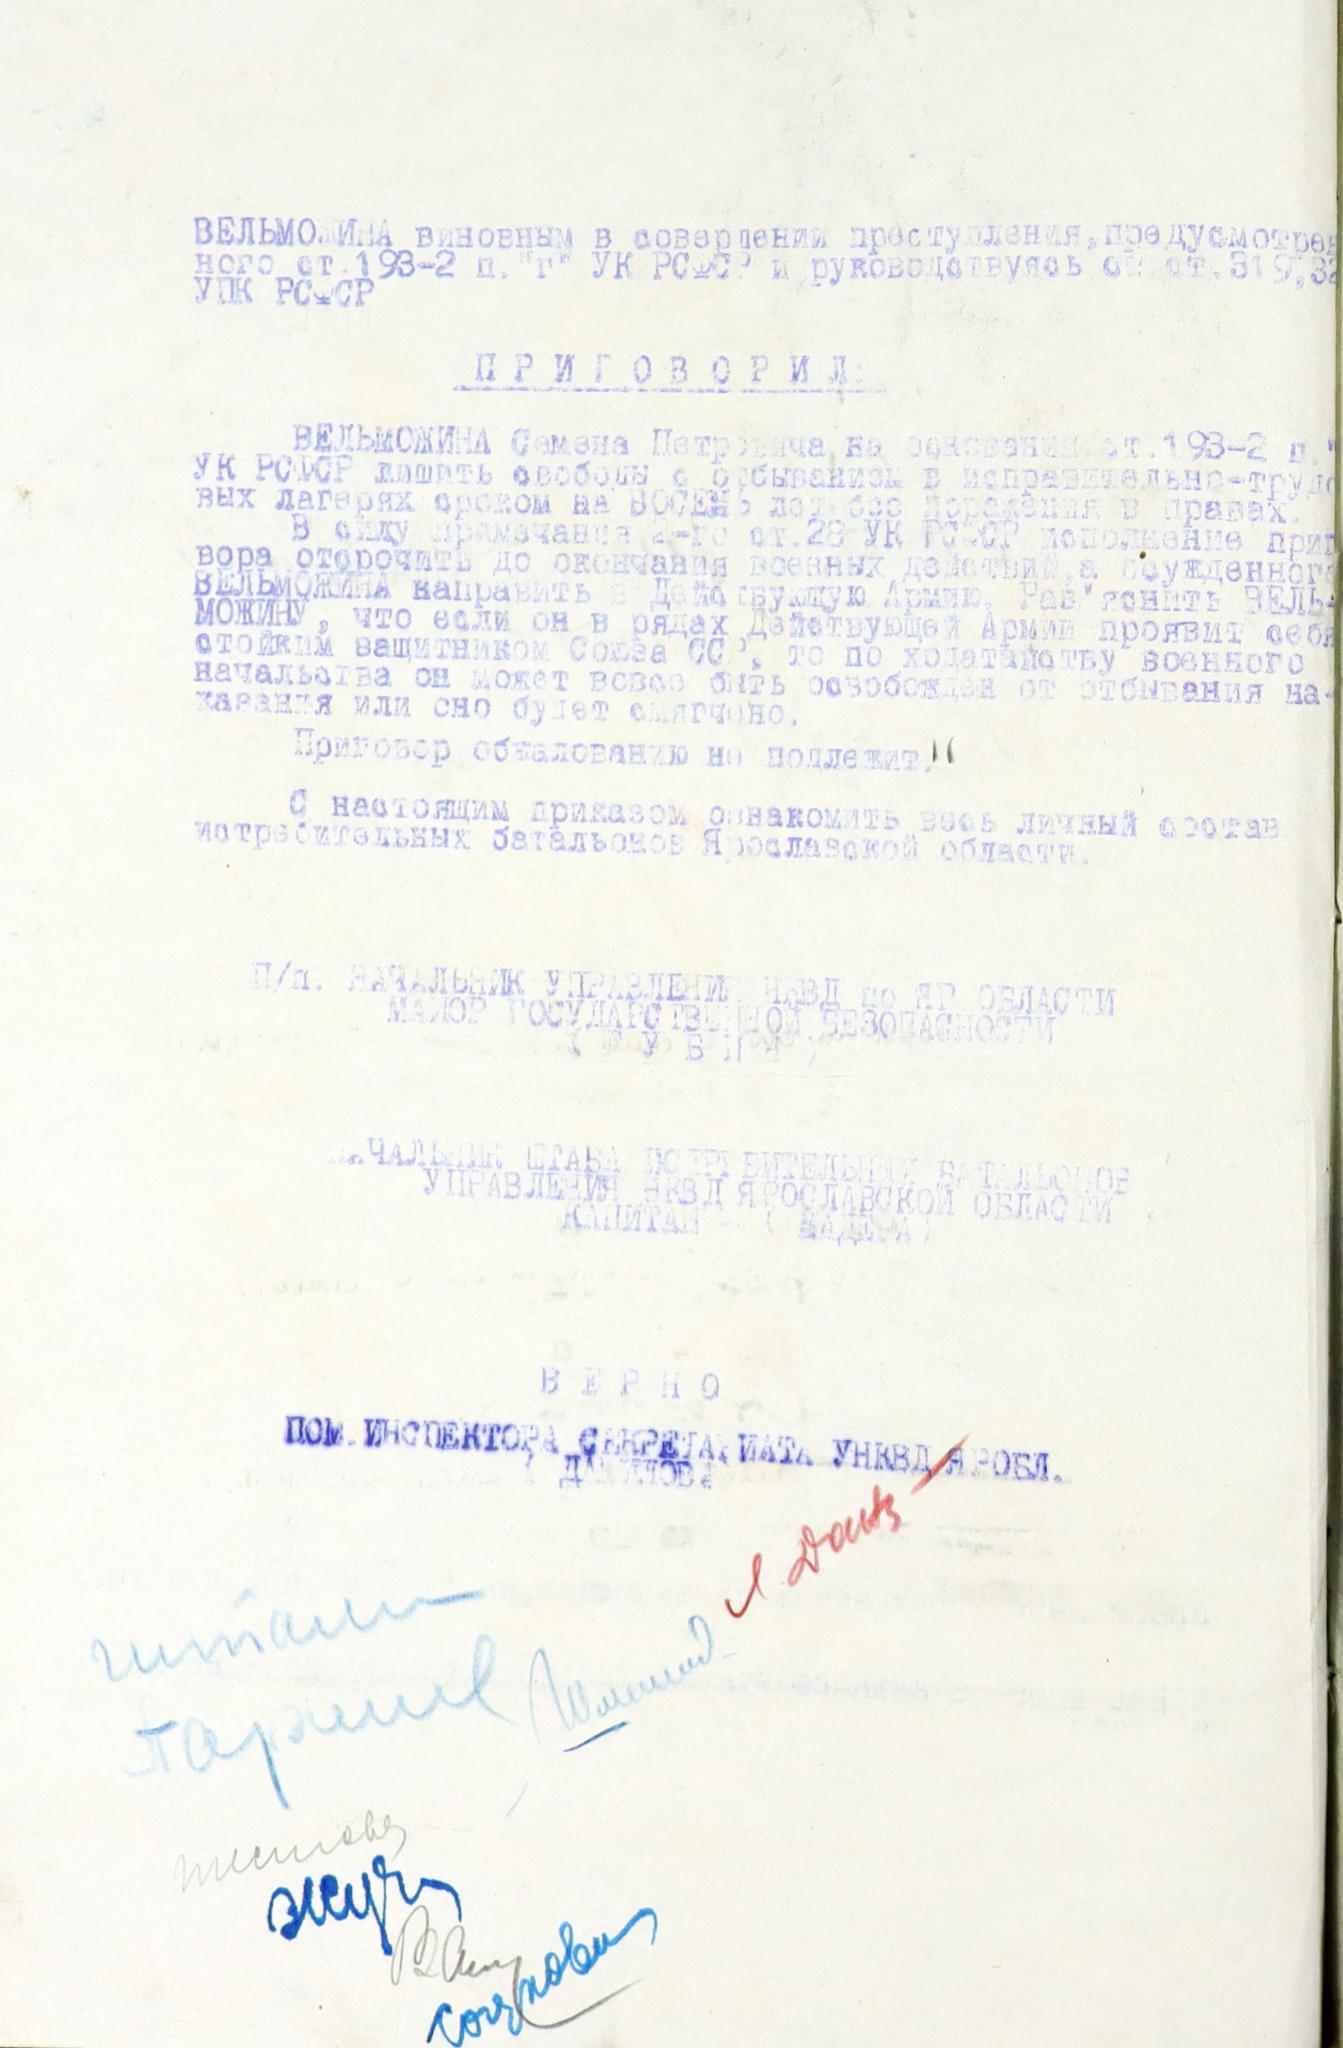 ВЕЛЬМОЖИНА виновным в совершении преступления, предусмотрен
ного ст.193-2 п."г" УК РСФСР и руководствуясь ст.ст.319,32
УПК РСФСР
ПРИГОВОРИЛ:
ВЕЛЬМОЖИНА Семена Петровича на основании ст.193-2 п."
УК РСФСР лишить свободы с отбыванием в исправительно-трудо
вых лагерях сроком на ВОСЕМЬ лет без поражения в правах.
В силу примечания 2-го ст.28 УК РСФСР исполнение приг
вора отсрочить до окончания военных действий, а осужденного
ВЕЛЬМОЖИНА направить в Действующую Армию. Раз"яснить ВЕЛЬ-
МОЖИНУ, что если он в рядах Действующей Армии проявит себя
стойким защитником Союза ССР, то по ходатайству военного
начальства он может вовсе быть освобожден от отбывания на-
казания или оно будет смягчено.
Приговор обжалованию не подлежит."
С настоящим приказом ознакомить весь личный состав
истребительных батальонов Ярославской области.
П/п. НАЧАЛЬНИК УПРАВЛЕНИЯ НКВД по ЯР ОБЛАСТИ
МАЙОР ГОСУДАРСТВЕННОЙ БЕЗОПАСНОСТИ
( ГУБИН )
НАЧАЛЬНИК ШТАБА ИСТРЕБИТЕЛЬНЫХ БАТАЛЬОНОВ
УПРАВЛЕНИЯ НКВД ЯРОСЛАВСКОЙ ОБЛАСТИ
КАПИТАН - ( МАДЕРА )
ВЕРНО
ПОМ.ИНСПЕКТОРА СЕКРЕТАРИАТА УНКВД ЯРОБЛ.
( ДАНИЛОВА
читали